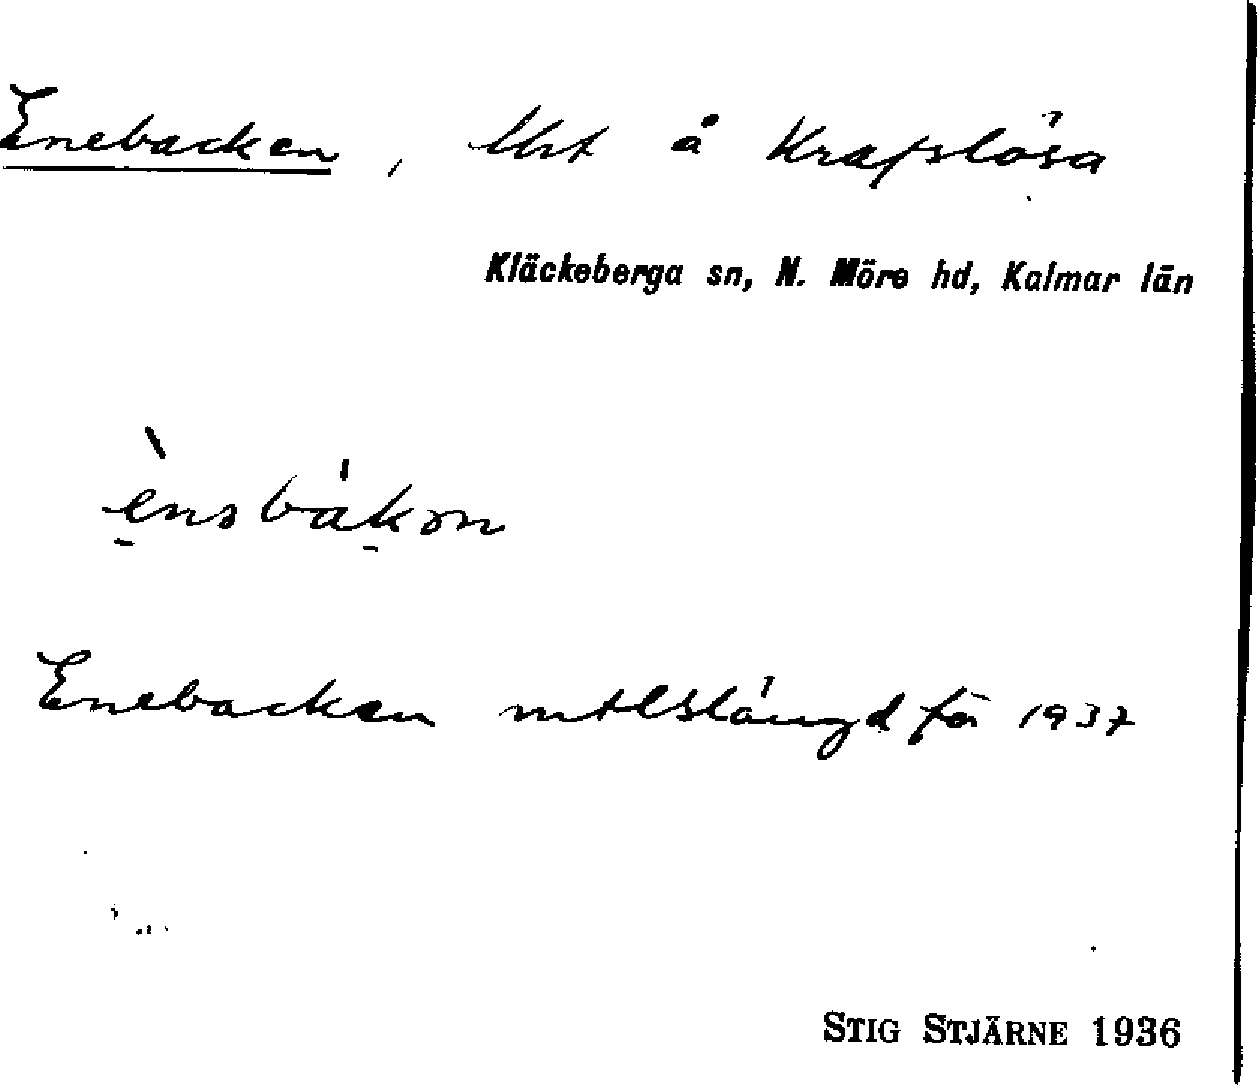 Enebacken, lht å Krafslösa
Kläckeberga sn, N. Möre hd, Kalmar län
Enebacken mtlslängd för 1937
STIG STJÄRNE 1936